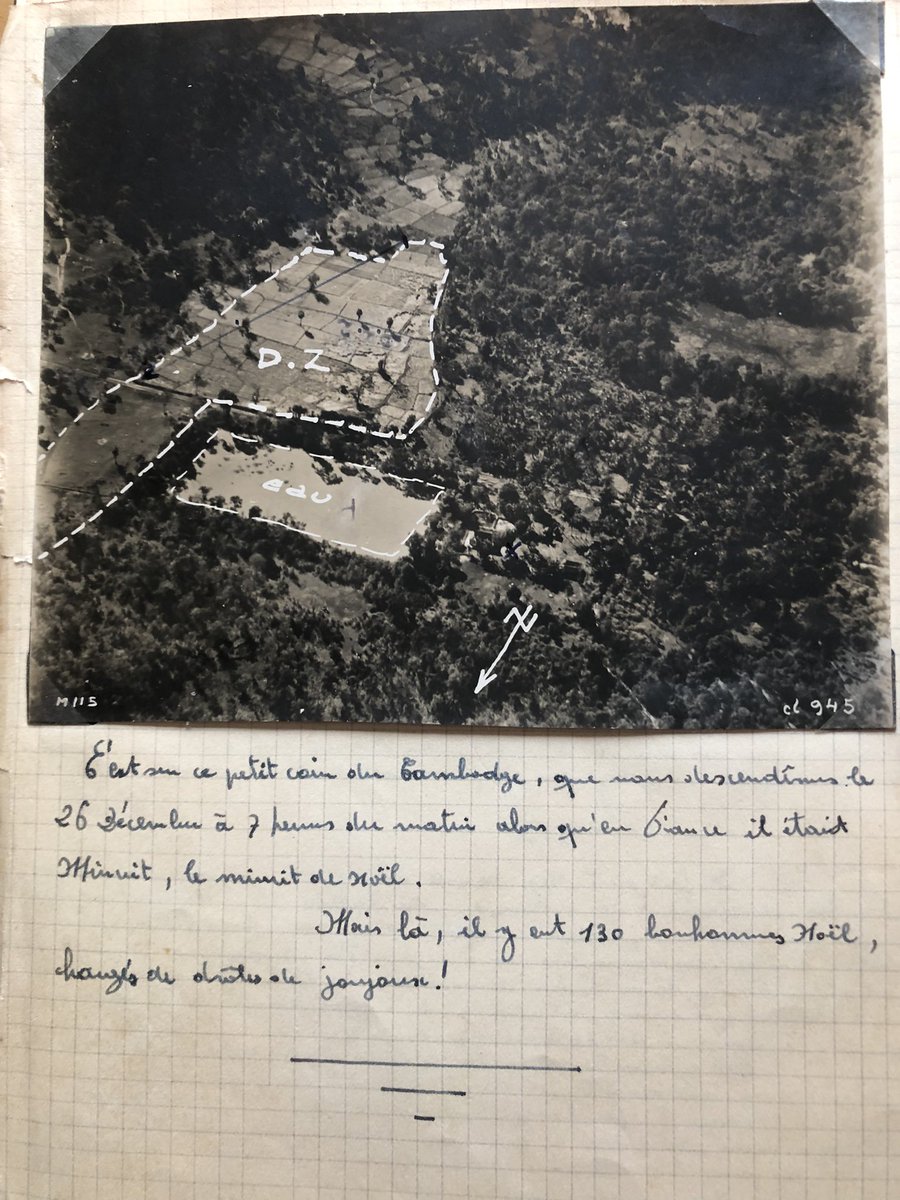 D.Z
eau
N
M115
cl 945
C'est sur ce petit coin du Cambodge, que nous descendîmes le
26 Décembre à 7 heures du matin alors qu'en France il était
Minuit, le minuit de Noël.
Mais là, il y eut 130 bonhommes Noël,
chargés de drôles de joujoux!